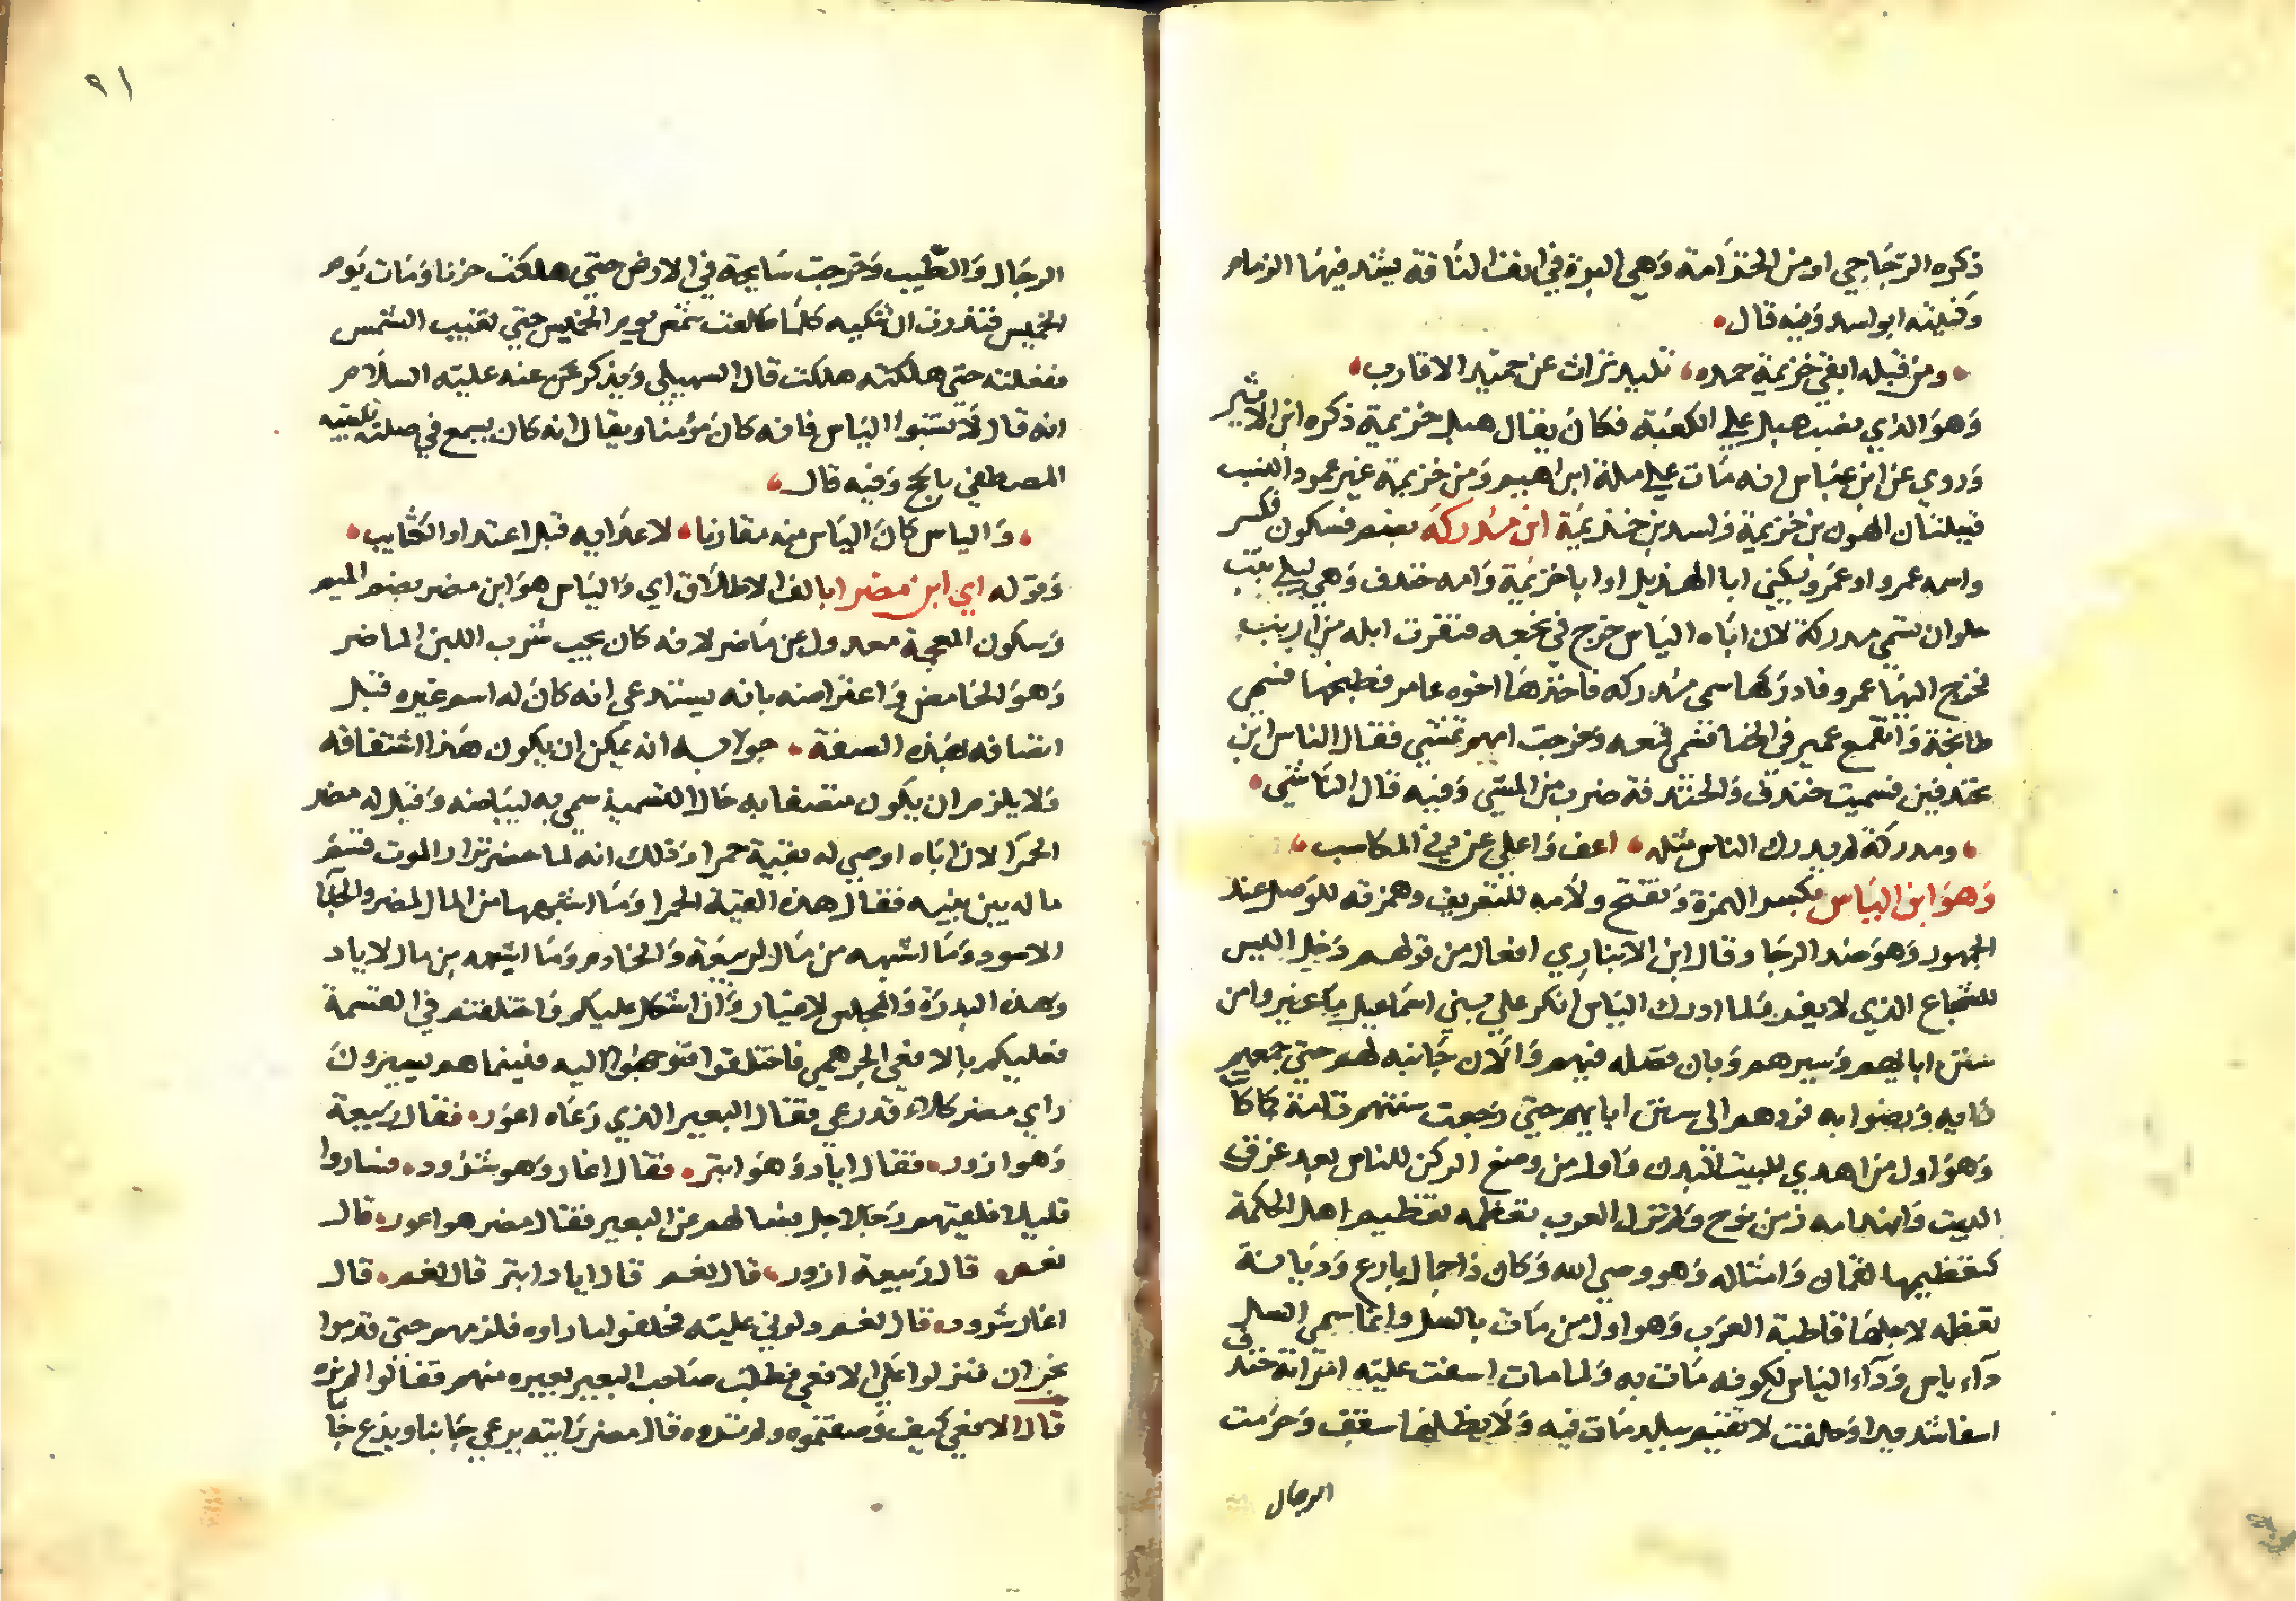 ذكره الزجاجي او من الخزامة وهي البرة في انف الناقة يشد فيها الزمام
وكنيته ابو اسد وفيه قال
ومن قبله ابقي خزيمة حمده تليد تراث عن حميد الاقارب
وهو الذي نصب هبل علي الكعبة فكان يقال هبل خزيمة ذكره ابن الاثير
وروي عن ابن عباس انه مات علي ملة ابراهيم ومن خزيمة غير عمود النسب
قبيلتان الهون بن خزيمة واسد بن خزيمة ابن مدركة بضم فسكون فكسر
واسمه عمرو او عمر ويكني ابا الهذيل او ابا خزيمة وامه خندف وهي ليلي بنت
حلوان سمي مدركة لان اباه الياس خرج في نجعه فنفرت ابله من ارنب
فخرج اليها عمرو فادركها سمي مدركه فاخذها اخوه عامر فطبخها فسمي
طابخة وانقمع عمير في الخبا فسمي قمعه وخرجت امهم تمشي فقال الياس اين
تخندفين فسميت خندف والخندفة ضرب من المشي وفيه قال الناشي
ومدركة لم يدرك الناس مثله اعف واعلي عن دني المكاسب
وهو ابن الياس بكسر الهمزة وتفتح ولامه للتعريف وهمزته للوصل عند
الجمهور وهو ضد الرجا وقال ابن الانباري افعال من قولهم رجل اليس
للشجاع الذي لا يفر ولما ادرك الياس انكر علي بني اسماعيل ما غيروا من
سنن ابايهم وسيرهم وبان فضله فيهم والان جانبه لهم حتي جمعهم
رايه ورضوا به فردهم الى سنن ابايهم حتي رجعت سنتهم تامة كما كا
وهو اول من اهدي للبيت البدن واول من وضع الركن للناس بعد غرق
البيت وانهدامه زمن نوح ولم تزل العرب تعظمه تعظيم اهل الحكمة
كتعظيمها لقمان وامثاله وهو وصي الله وكان ذا جمال بارع وديانة
تعظمه لاجلها قاطبة العرب وهو اول من مات بالسل وانما سمي السل
داء ياس وداء الياس لكونه مات به ولما مات اسفت عليه امراته خندف
اسفا شديدا وحلفت لا تقيم ببلد مات فيه ولا يظلها سقف وحرمت
الرجال
٩١
الرجال والطيب وخرجت سايحة في الارض حتي هلكت حزنا ومات يوم
الخميس فنذرت ان تبكيه كلما طلعت شمس يوم الخميس حتي تغيب الشمس
ففعلته حتي هلكته هلكت قال السهيلي ويذكر عن عنه عليه السلام
انه قال لا تسبوا الياس فانه كان مؤمنا ويقال انه كان يسمع في صلبه تلبية
المصطفي بالحج وفيه قال
والياس كان الياس منه مقارنا لاعدايه قبل اعتداد الكتايب
وقوله اي ابن مضر ابا بالف الاطلاق اي والياس هو ابن مضر بضم الميم
وسكون المعجمة معدول عن ماضر لانه كان يحب شرب اللبن الماضر
وهو الحامض واعتراضه بانه يستدعي انه كان له اسم غيره قبل
اتصافه بهذه الصفة جوابه انه يمكن ان يكون هذا اشتقاقه
ولا يلزم ان يكون متصفا به حال التسمية سمي به لبياضه وقيل له مضر
الحمرا لان اباه اوصي له بقبة حمرا وذلك انه لما حضر نزار الموت قسم
ماله بين بنيه فقال هذه القبة الحمرا وما اشبهها من المال لمضر والخبا
الاسود وما اشبهه من مال لربيعة والخادم وما اشبهه من مال لاياد
وهذه البدرة والمجلس لانمار وان اشكل عليكم واختلفتم في القسمة
فعليكم بالافعي الجرهمي فاختلفوا فتوجهوا اليه فبينما هم يسيرون
راي مضر كلاء قد رعي فقال البعير الذي رعاه اعور فقال ربيعة
وهو ازور فقال اياد وهو ابتر فقال انمار وهو شرود فساروا
قليلا فلقيهم رجل الاجل فسالهم عن البعير فقال مضر هو اعور قال
نعم قال ربيعة ازور قال نعم قال اياد ابتر قال نعم قال
انمار شرود قال نعم دلوني عليه فحلفوا ما راوه فلزمهم حتي قدموا
نجران فنزلوا علي الافعي فطلب صاحب البعير بعيره منهم فقالوا لم نره
قال الافعي كيف وصفتموه ولم تروه قال مضر رايته يرعي جانبا ويدع جا